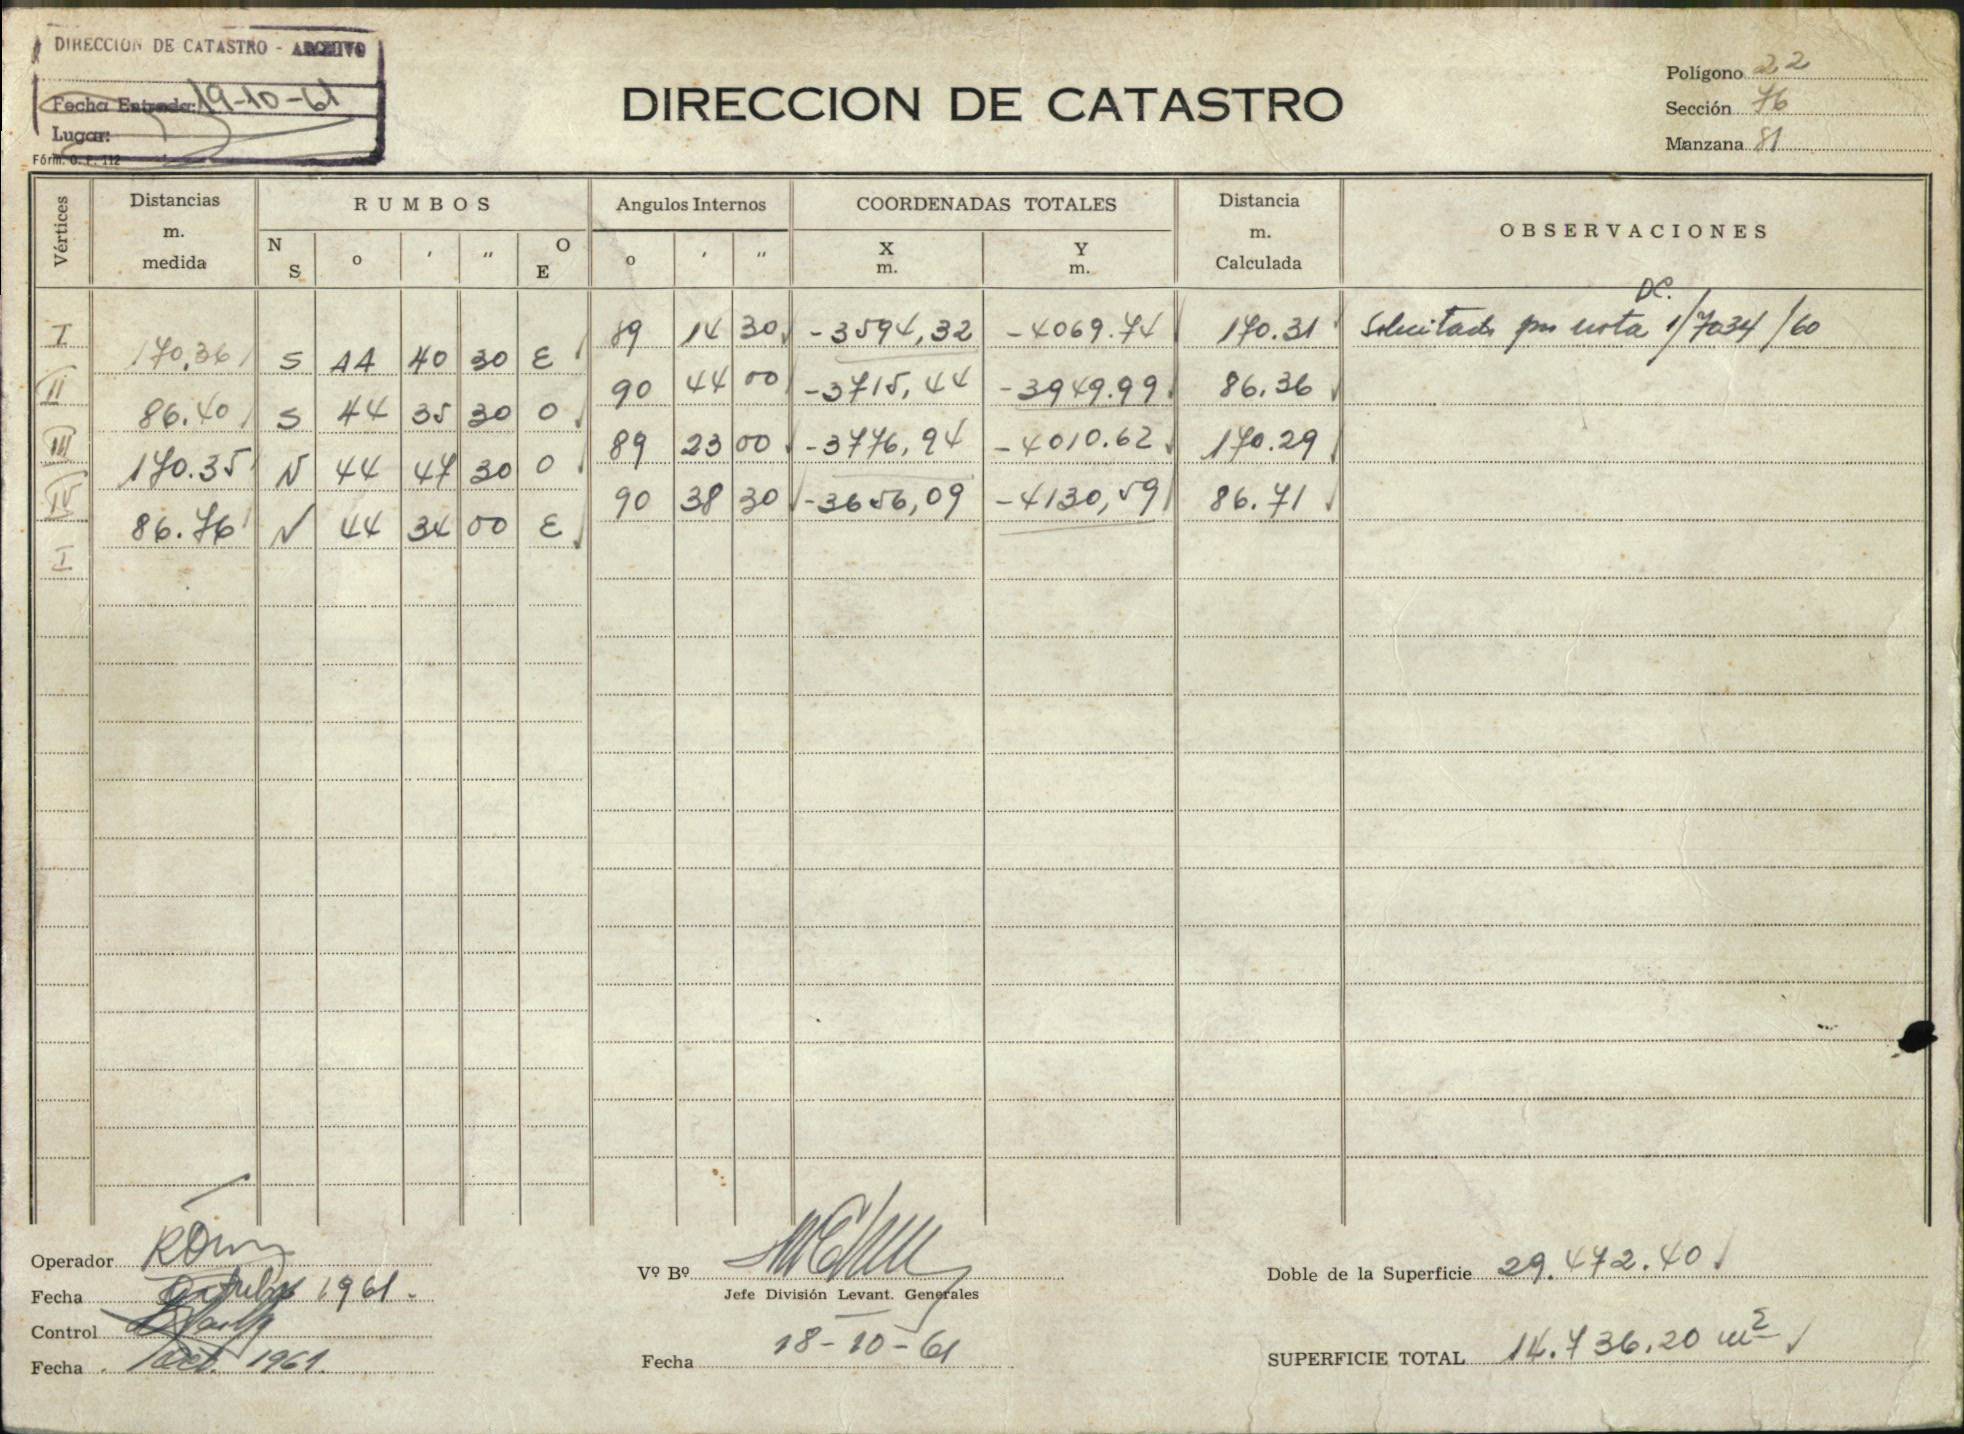 DIRECCION DE CATASTRO - ARCHIVO
Fecha Entrada: 19-10-61
Lugar:
Fórm. O. P. 112
DIRECCION DE CATASTRO
Polígono 22
Sección 76
Manzana 81
Vértices
Distancias m. medida
RUMBOS
N S o ' " O E
Angulos Internos
o ' "
COORDENADAS TOTALES
X m. Y m.
Distancia m. Calculada
OBSERVACIONES
DC.
I 89 14 30 -3594,32 -4069.74 170.31 Solicitado por nota 1/7034/60
170,36 S 44 40 30 E
II 90 44 00 -3715,44 -3949.99 86.36
86.40 S 44 35 30 O
III 89 23 00 -3776,94 -4010.62 170.29
170.35 N 44 47 30 O
IV 90 38 30 -3656,09 -4130,59 86.71
86.76 N 44 34 00 E
I
Operador
Fecha Octubre 1961.
Control
Fecha Oct. 1961.
Vº Bº
Jefe División Levant. Generales
Fecha 18-10-61
Doble de la Superficie 29.472.40
SUPERFICIE TOTAL 14.736.20 m²